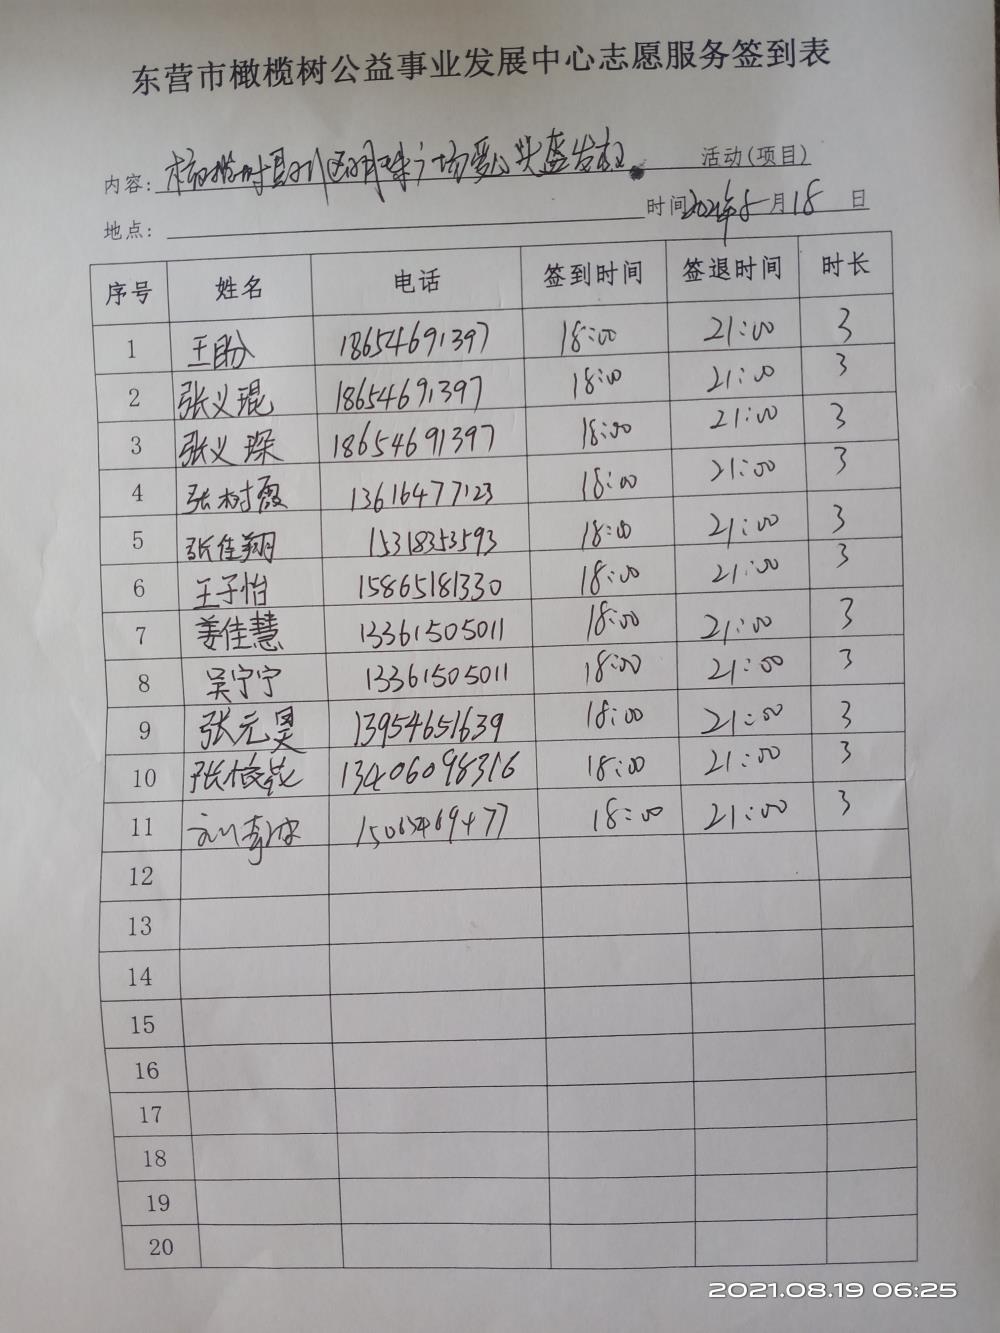 东营市橄榄树公益事业发展中心志愿服务签到表
内容: 橄榄树垦利区明珠广场爱心头盔发放 活动(项目)
地点: 时间2021年8月18日
序号 姓名 电话 签到时间 签退时间 时长
1 王盼 18654691397 18:00 21:00 3
2 张义琨 18654691397 18:00 21:00 3
3 张义琛 18654691397 18:00 21:00 3
4 张树霞 13616477123 18:00 21:00 3
5 张佳翔 15318353593 18:00 21:00 3
6 王子怡 15865181330 18:00 21:00 3
7 姜佳慧 13361505011 18:00 21:00 3
8 吴宁宁 13361505011 18:00 21:00 3
9 张元昊 13954651639 18:00 21:00 3
10 张 13406098316 18:00 21:00 3
11 18:00 21:00 3
12
13
14
15
16
17
18
19
20
2021.08.19 06:25